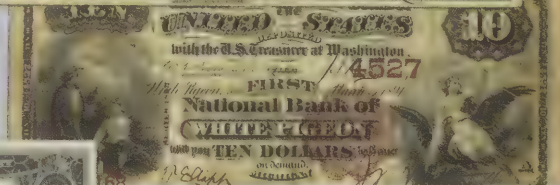 THE
TEN UNITED STATES 10
DEPOSITED
with the U.S. Treasurer at Washington.
4527
FIRST
National Bank of
WHITE PIGEON
Will pay TEN DOLLARS to Bearer
on demand.